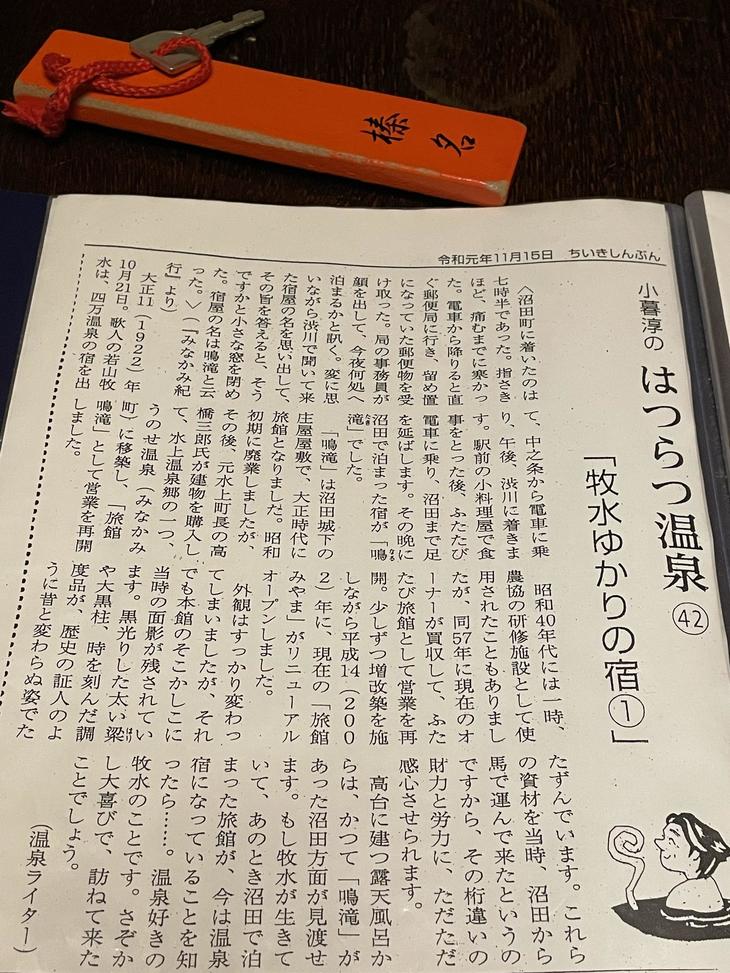 榛名
令和元年11月15日　ちいきしんぶん
小暮淳の はつらつ温泉 ㊷
「牧水ゆかりの宿①」
〈沼田町に着いたのは
七時半であった。指さき
ほど、痛むまでに寒かっ
た。電車から降りると直
ぐ郵便局に行き、留め置
になっていた郵便物を受
け取った。局の事務員が
顔を出して、今夜何処へ
泊まるかと訊く。変に思
いながら渋川で聞いて来
た宿屋の名を思い出して、
その旨を答えると、そう
ですかと小さな窓を閉め
た。宿屋の名は鳴滝と云
った。〉（『みなかみ紀
行』より）
大正11（1922）年
10月21日。歌人の若山牧
水は、四万温泉の宿を出
て、中之条から電車に乗
り、午後、渋川に着きま
す。駅前の小料理屋で食
事をとった後、ふたたび
電車に乗り、沼田まで足
を延ばします。その晩に
沼田で泊まった宿が「鳴
滝」でした。
「鳴滝」は沼田城下の
庄屋屋敷で、大正時代に
旅館となりました。昭和
初期に廃業しましたが、
その後、元水上町長の高
橋三郎氏が建物を購入し
て、水上温泉郷の一つ、
うのせ温泉（みなかみ
町）に移築し、「旅館
鳴滝」として営業を再開
しました。
昭和40年代には一時、
農協の研修施設として使
用されたこともありまし
たが、同57年に現在のオ
ーナーが買収して、ふた
たび旅館として営業を再
開。少しずつ増改築を施
しながら平成14（200
2）年に、現在の「旅館
みやま」がリニューアル
オープンしました。
外観はすっかり変わっ
てしまいましたが、それ
でも本館のそこかしこに
当時の面影が残されてい
ます。黒光りした太い梁
や大黒柱、時を刻んだ調
度品が、歴史の証人のよ
うに昔と変わらぬ姿でた
たずんでいます。これら
の資材を当時、沼田から
馬で運んで来たというの
ですから、その桁違いの
財力と労力に、ただただ
感心させられます。
高台に建つ露天風呂か
らは、かつて「鳴滝」が
あった沼田方面が見渡せ
ます。もし牧水が生きて
いて、あのとき沼田で泊
まった旅館が、今は温泉
宿になっていることを知
ったら……。温泉好きの
牧水のことです。さぞか
し大喜びで、訪ねて来た
ことでしょう。
（温泉ライター）